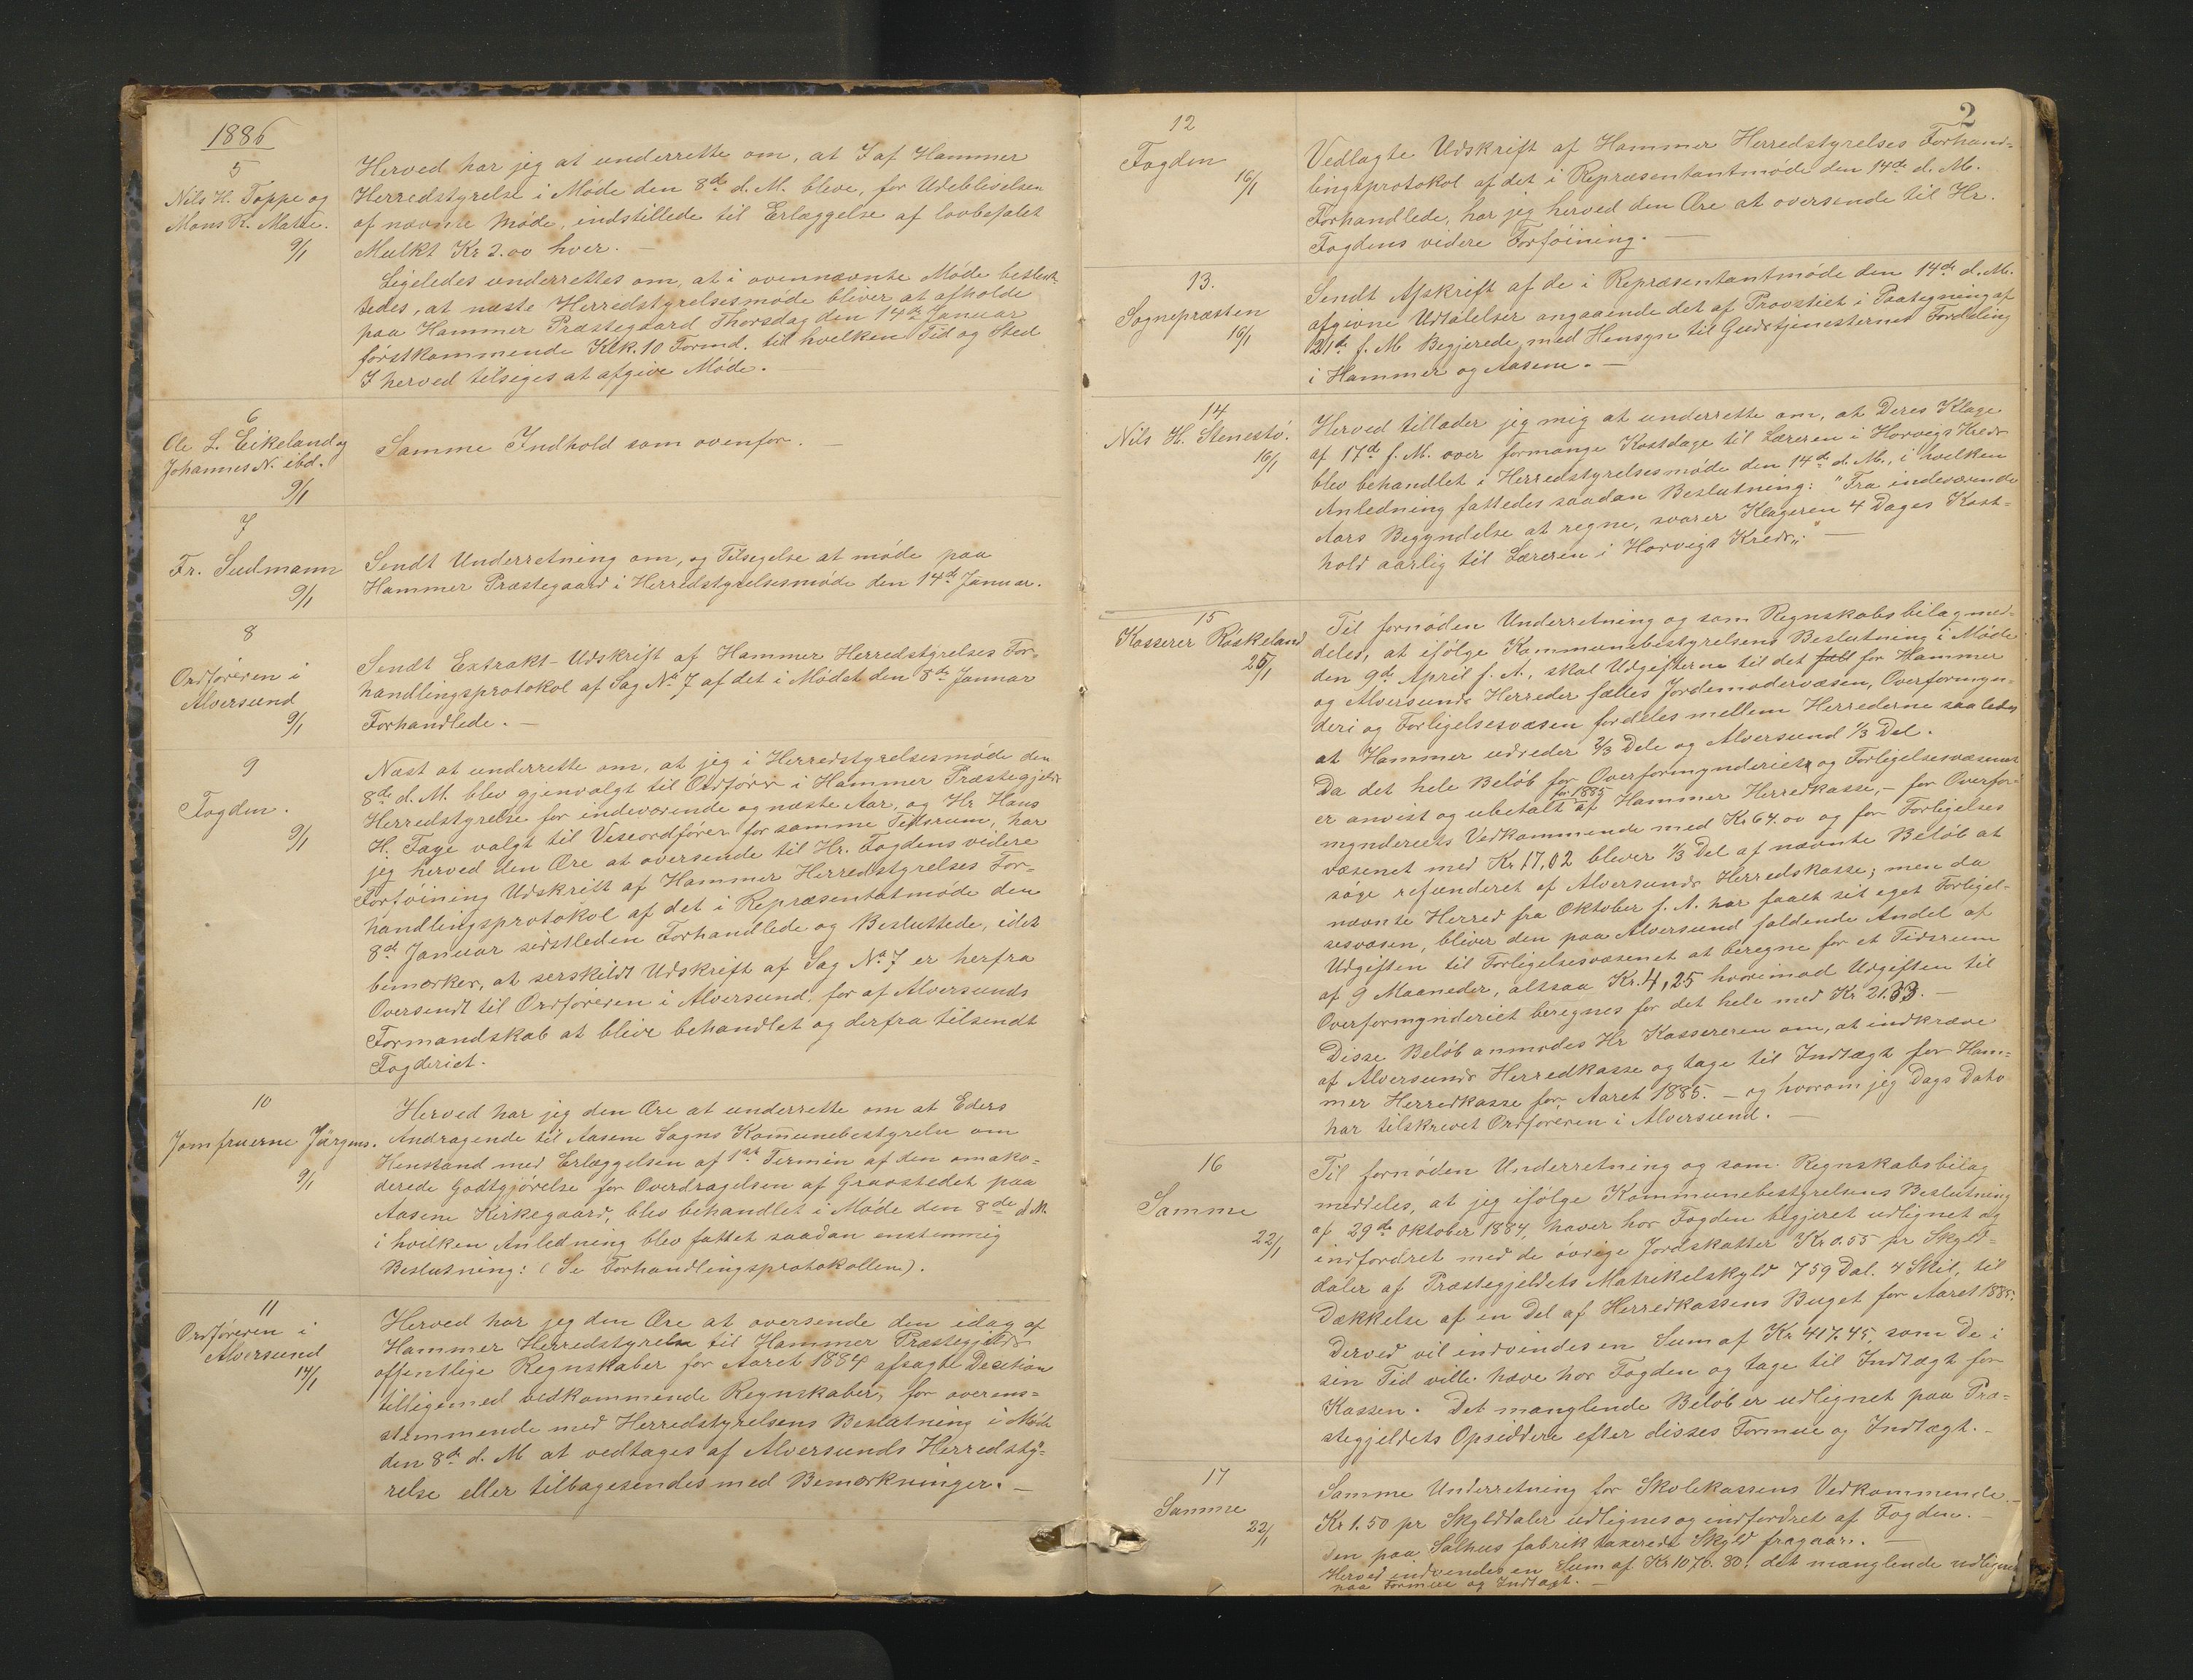 1886
5
Nils H. Toppe og
Mons R. Matre.
9/1
Herved har jeg at underrette om, at I af Hammer
Herredstyrelse i Møde den 8de d. M. bleve, for Udeblivelsen
af nævnte Møde, indstillede til Erlæggelse af lovbefalet
Mulkt Kr 2.00 hver. —
Ligeledes underrettes om, at i ovennævnte Møde beslut-
tedes, at næste Herredstyrelsesmøde bliver at afholde
paa Hammer Præstegaard Thorsdag den 14de Januar
førstkommende Klk. 10 Formd. til hvelken Tid og Sted
I herved tilsiges at afgive Møde. —
6
Ole L. Eikeland og
Johannes N. ibd.
9/1
Samme Indhold som ovenfor. —
7
Fr. Sudmann
9/1
Sendt Underretning om, og Tilsegelse at møde paa
Hammer Præstegaard i Herredstyrelsesmøde den 14de Januar.
8
Ordføreren i
Alversund
9/1
Sendt Extrakt-Udskrift af Hammer Herredstyrelses For-
handlingsprotokol af Sag No 7 af det i Mødet den 8de Januar
Forhandlede. —
9
Fogden.
9/1
Næst at underrette om, at jeg i Herredstyrelsesmøde den
8de d. M. blev gjenvalgt til Ordfører i Hammer Præstegjelds
Herredstyrelse for indeværende og næste Aar, og Hr Hans
H. Fage valgt til Viseordfører for samme Tidsrum, har
jeg herved den Ære at oversende til Hr. Fogdens videre
Forføining Udskrift af Hammer Herredstyrelses For-
handlingsprotokol af det i Repræsentatmøde den
8de Januar sidstleden Forhandlede og Besluttede, idet
bemærker, at serskildt Udskrift af Sag No 7 er herfra
Oversendt til Ordføreren i Alversund, for af Alversunds
Formandskab at blive behandlet og derfra tilsendt
Fogderiet.
10
Jomfruerne Jürgens.
9/1
Herved har jeg den Ære at underrette om at Eders
Andragende til Aasene Sogns Kom̄unebestyrelse om
Henstand med Erlæggelsen af 1ste Termin af den omako-
derede Godtgjørelse for Overdragelsen af Gravstedet paa
Aasene Kirkegaard, blev behandlet i Møde den 8de d. M.
i hvilken Anledning blev fattet saadan enstemmig
Beslutning: (Se Forhandlingsprotokollen).
11
Ordføreren i
Alversund
14/1
Herved har jeg den Ære at oversende den idag af
Hammer Herredstyrelse til Hammer Præstegjelds
offentlige Regnskaber for Aaret 1884 afsagte Desition
tilligemed vedkommende Regnskaber, for overens-
stemmende med Herredstyrelsens Beslutning i Møde
den 8de d. M at vedtages af Alversunds Herredsty-
relse eller tilbagesendes med Bemærkninger. —
2
12
Fogden
16/1
Vedlagte Udskrift af Hammer Herredstyrelses Forhand-
lingsprotokol af det i Repræsentantmøde den 14de d. M.
Forhandlede, har jeg herved den Ære at oversende til Hr.
Fogdens videre Forføining. —
13.
Sognepræsten
16/1
Sendt Afskrift af de i Repræsentantmøde den 14de d. M.
afgivne Udtalelser angaaende det af Provstiet i Paategning af
21de f. M. Begjerede, med Hensyn til Gudstjenesternes Fordeling
i Hammer og Aasene. —
14
Nils H. Stenestø.
16/1
Herved tillader jeg mig at underrette om, at Deres Klage
af 17de f. M. over formange Kostdage til Læreren i Horvigs Kreds
blev behandlet i Herredstyrelsesmøde den 14de d. M., i hvilken
Anledning fattedes saadan Beslutning: "Fra indeværende
Aars Begyndelse at regne, svarer Klageren 4 Dages Kost-
hold aarlig til Læreren i Horvigs Kreds". —
15
Kasserer Røskeland
26/1
Til fornøden Underretning og som Regnskabsbilag med-
deles, at ifølge Kommunebestyrelsens Beslutning i Møde
den 9de April f. A., skal Udgifterne til det fæll for Hammer
og Alversunds Herreder fælles Jordemodervæsen, Overformyn-
deri og Forligelsesvæsen fordeles mellem Herrederne saaledes
at Hammer udreder 2/3 Dele og Alversund 1/3 Del.
Da det hele Beløb for Overformynderiets og Forligelsesvæsenet
for 1885
er anvist og ubetalt af Hammer Herredkasse, — for Overfor-
mynderiets Vedkommende med Kr 64.00 og for Forligelses
væsenet med Kr. 17,02 bliver 1/3 Del af nævnte Beløb at
søge refunderet af Alversunds Herredskasse; men da
nævnte Herred fra Oktober f. A. har faaet sit eget Forligel-
sesvæsen, bliver den paa Alversund faldende Andel af
Udgiften til Forligelsesvæsenet at beregne for et Tidsrum
af 9 Maaneder, altsaa Kr. 4,25 hvorimod Udgiften til
Overformynderiet beregnes for det hele med Kr 21.33. —
Disse Beløb anmodes Hr Kassereren om, at indkræve
af Alversunds Herredkasse og tage til Indtægt for Ham-
mer Herredkasse for Aaret 1885. — og hvorom jeg Dags Dato
har tilskrevet Ordføreren i Alversund. —
16
Samme
22/1
Til fornøden Underretning og som Regnskabsbilag
meddeles, at jeg ifølge Kommunebestyrelsens Beslutning
af 29de Oktober 1884, haver hos Fogden begjeret udlignet og
indfordret med de øvrige Jordskatter Kr 0.55 pr Skyld-
daler af Præstegjeldets Matrikelskyld 759 Dal. 4 Skil, til
Dækkelse af en Del af Herredkassens Buget for Aaret 1885.
Derved vil indvindes en Sum af Kr 417.45, som De i
sin Tid ville hæve hos Fogden og tage til Indtægt for
Kassen. Det manglende Beløb er udlignet paa Præ-
stegjeldets Opsiddere efter disses Formue og Indtægt. —
17
Samme
22/1
Samme Underretning for Skolekassens Vedkommende. —
Kr 1.50 pr Skylddaler udlignes og indfordret af Fogden. —
Den paa Salhus fabrik taxerede Skyld fragaar. —
Herved indvendes en Sum af Kr 1070.80; det manglende udlignes
paa Formue og Indtægt. —